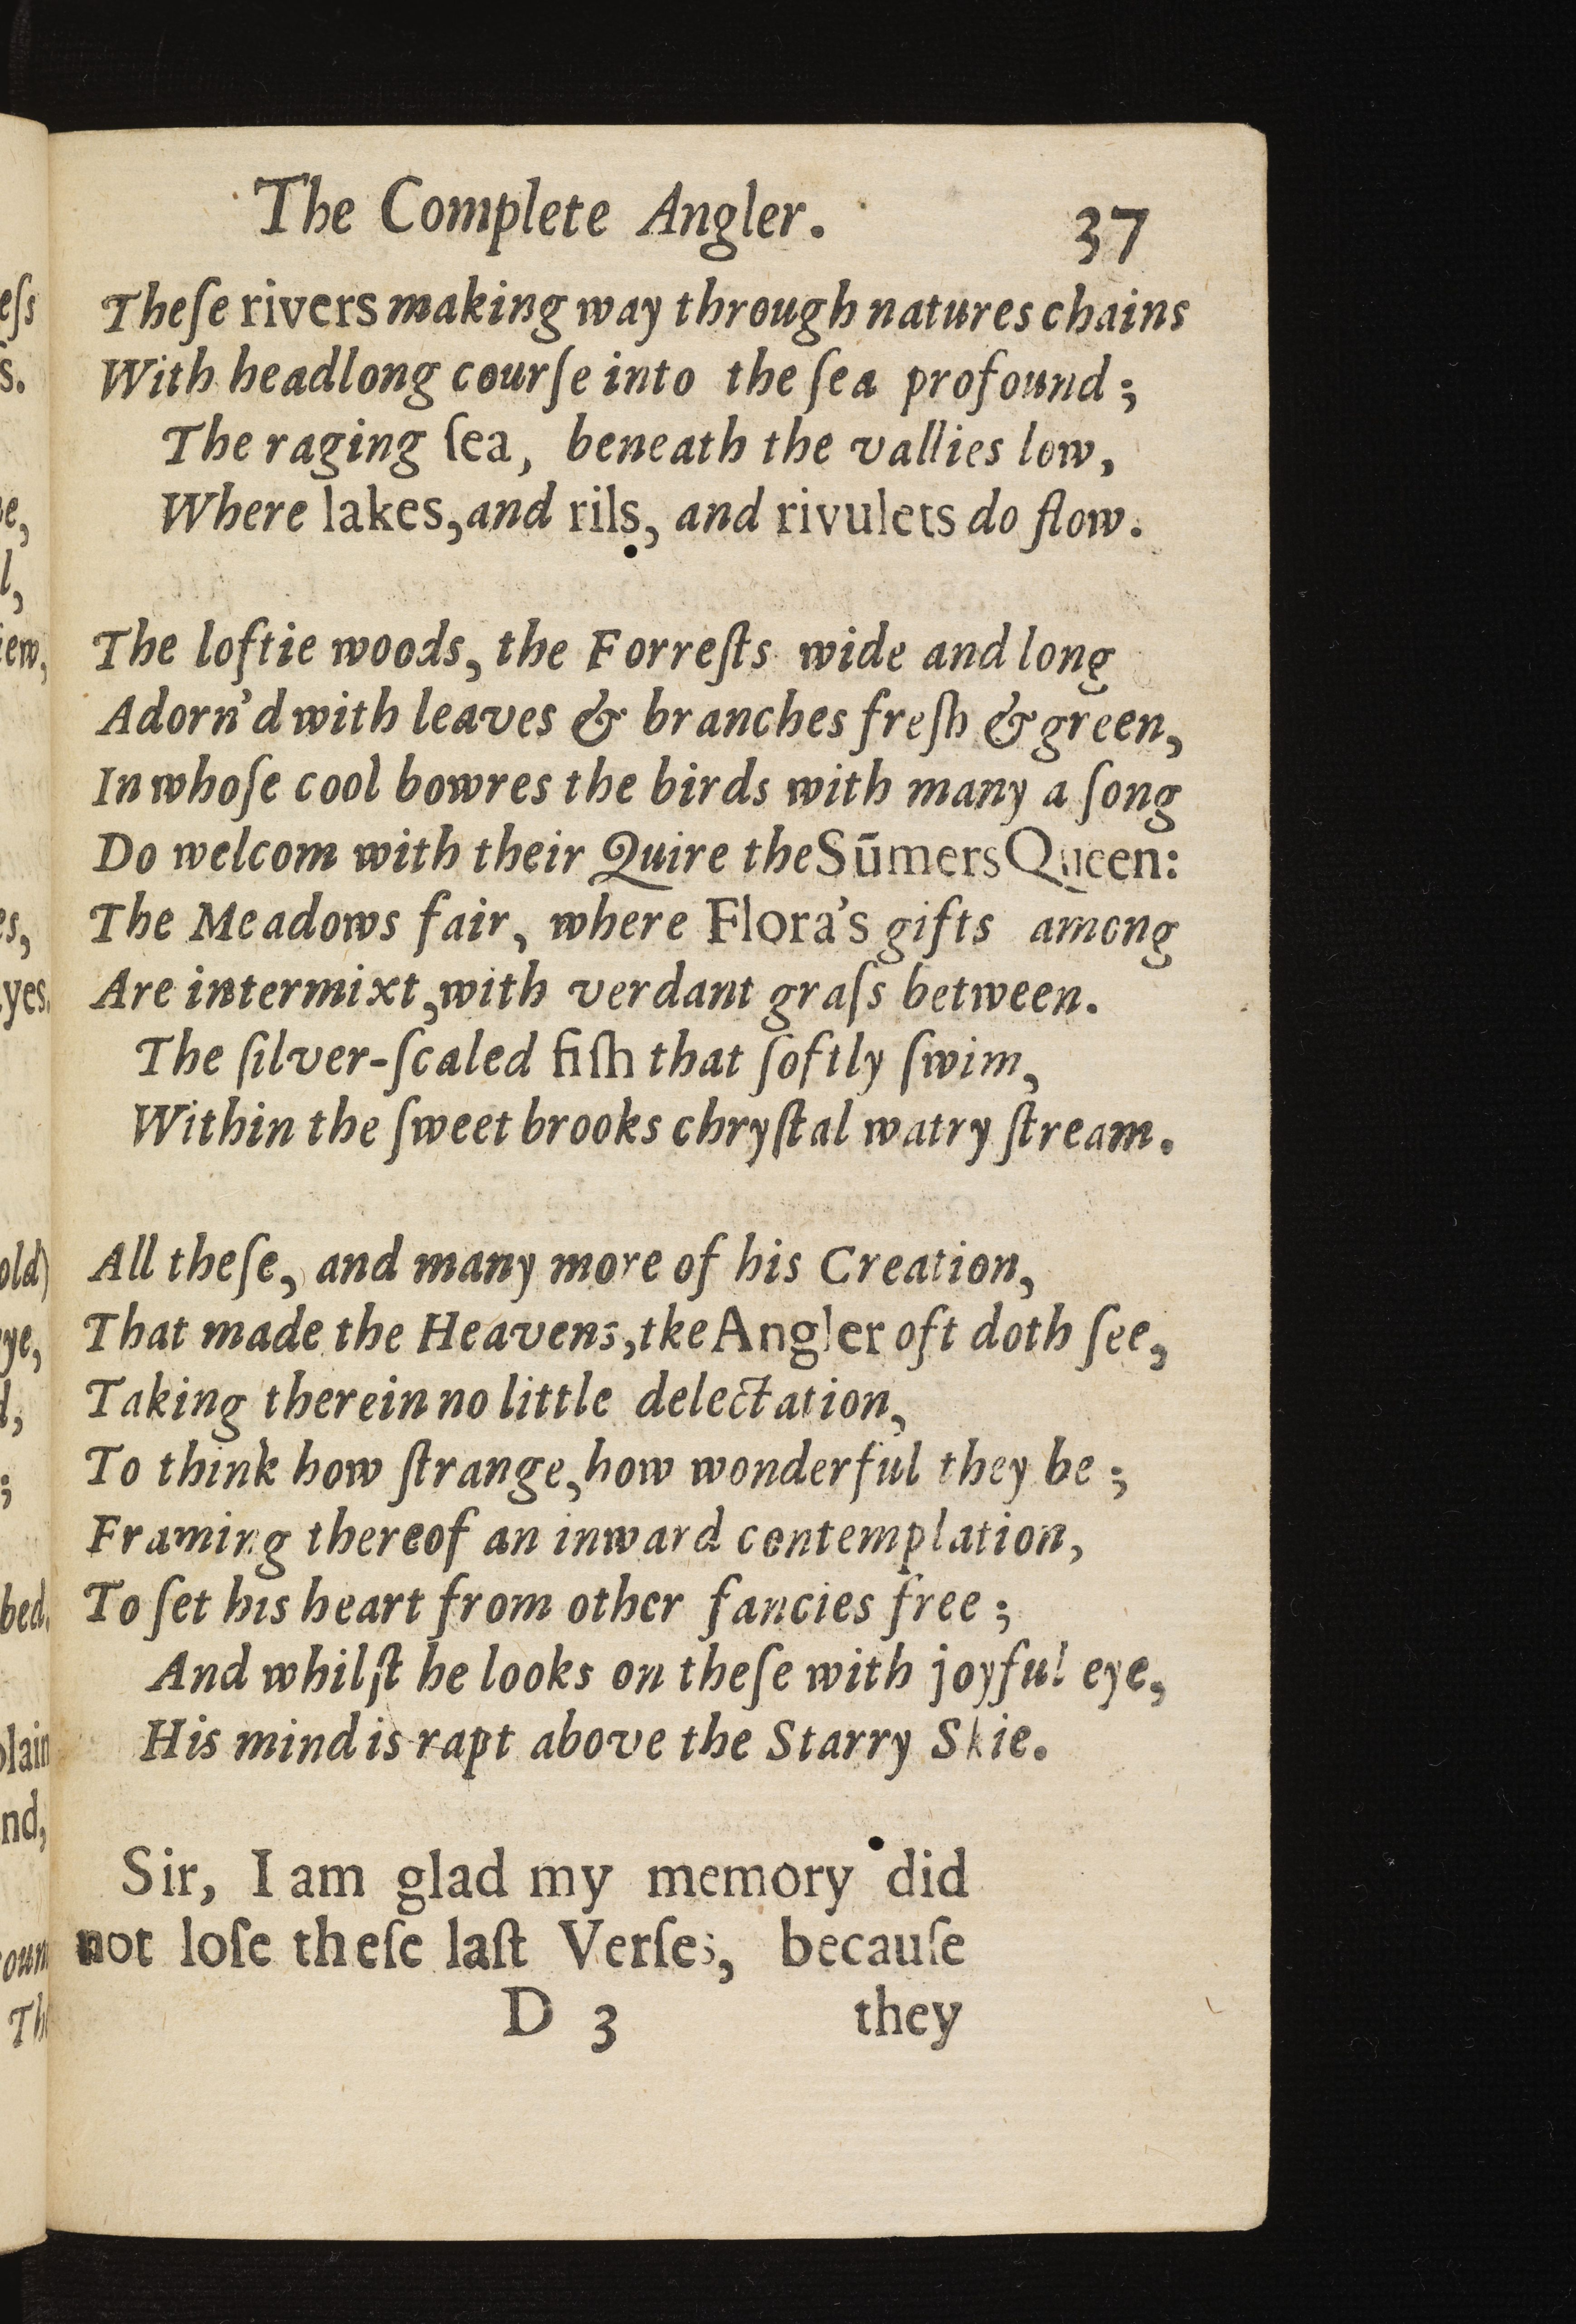 The Complete Angler. 37
Theſe rivers making way through natures chains
With headlong courſe into the ſea profound;
The raging ſea, beneath the vallies low,
Where lakes, and rils, and rivulets do flow.
The loftie woods, the Forreſts wide and long
Adorn'd with leaves & branches freſh & green,
In whoſe cool bowres the birds with many a ſong
Do welcom with their Quire the Sūmers Queen:
The Meadows fair, where Flora's gifts among
Are intermixt, with verdant graſs between.
The ſilver-ſcaled fiſh that ſoftly ſwim,
Within the ſweet brooks chryſtal watry ſtream.
All theſe, and many more of his Creation,
That made the Heavens, tke Angler oft doth ſee,
Taking therein no little delectation,
To think how ſtrange, how wonderful they be;
Framing thereof an inward contemplation,
To ſet his heart from other fancies free;
And whilſt he looks on theſe with joyful eye,
His mind is rapt above the Starry Skie.
Sir, I am glad my memory did
not loſe theſe laſt Verſes, becauſe
D 3 they